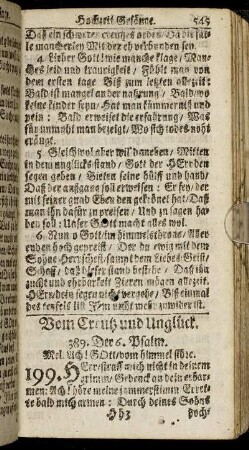 Hochzeit Gesänge. 545
Daß ein schwerer
le mancherley Mit der eh verbunden sey.
4. Lieber Gott! wie manche klage/ Man-
ches leid und traurigkeit/ Fühlt man von
dem ersten tage Biß zum letzten allezeit:
Bald ist mangel an der nahrung/ Bald/ wo
keine kinder seyn/ Hat man kümmerniß und
pein: Bald erweist die erfahrung/ Was
für unmuht man bezeigt/ Wo sich todes noht
eräugt.
5. Gleichwol aber wil daneben/ Mitten
in dem unglücksstand/ Gott der HErr den
segen geben/ Bieten seine hülff und hand/
Daß der ansgang soll erweisen: Er sey/ der
mit seiner gnad Eben den gekrönet hat/ Daß
man ihn dafür zu preisen/ Und zu sagen ha-
ben soll: Unser GOtt macht alles wol.
6. Nun o Gott/ im himmelsthrone/ Wer-
den hoch gepreist/ Der du ewig mit dem
Sohne Herrschest/ sampt dem Liebes-Geist/
Schaff/ daß dieser stand bestehe/ Daß ihn
zucht und ehrbarkeit Zieren mögen allezeit.
HErr/ dein segen nicht vergehe/ Biß einmal
des teufels list Ihm nicht mehr zuwider ist.
Vom Creutz und Unglück.
389. Der 6. Psalm.
Mel. Ach! GOtt/ vom himmel sihe.
199. HErr/ straff mich nicht in deinem
grimm/ Gedenck an dein erbar-
men: Ach! höre meine jammerstimm/ Erret-
te bald mich armen: Durch deines Sohns
Hh3 hoch-